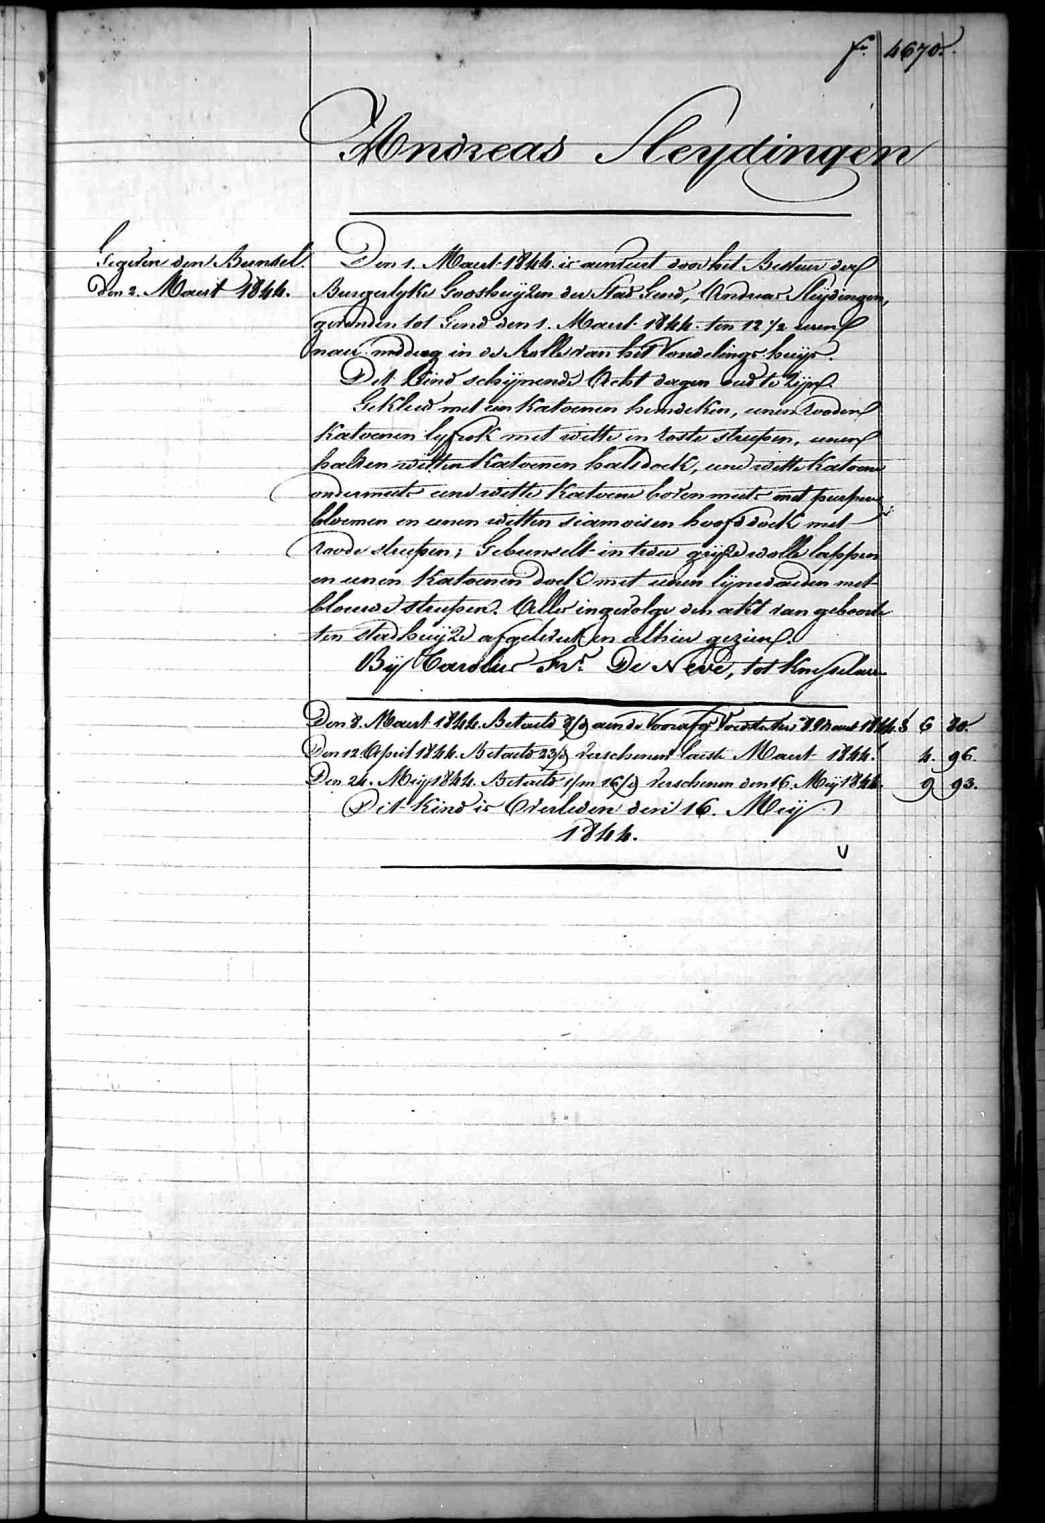 fo. 4670.
Andreas Sleydingen
Gegeven den Bunsel.
Den 2. Maert 1844.
Den 1. Maert 1844. is aenveert door het Bestuer der
Burgerlyke Godshuijzen der Stad Gend, Andreas Sleijdingen,
gevonden tot Gend den 1. Maert 1844. ten 12 1/2 uren
naer middag in de Rolle van het Vondelings-huijs.
Dit Kind schijnende Acht dagen oud te Zijn.
Gekleed met een Katoenen hemdeken, eenen rooden
Katoenen lyfrok met witte en roste streepen, eenen
halven witten Katoenen halsdoek, eene witte Katoene
ondermuts eene witte Katoene bovenmuts met purpere
bloemen en eenen witten siamoisen hoofddoek met
roode streepen; Gebunselt in twee grijze wolle lappen
en eenen Katoenen doek met eenen lijnwaeden met
blauwe streepen. Alles ingevolge den akt van geboorte
ten stadhuijze afgelevert en alhier gezien.
Bij Carolus Fr. De Neve, tot Knesselaere
Den 8. Maert 1844. Betaelt aen de Voorafg. Voedster 8 Maert 1844. 6 80.
Den 12 April 1844. Betaelt 23/d verschenen laeste Maert 1844. 4. 96.
Den 24. Meij 1844. Betaelt 1/m 16/d verschenen den 16. Meij 1844. 9 93.
Dit Kind is Overleden den 16. Meij
1844.
V